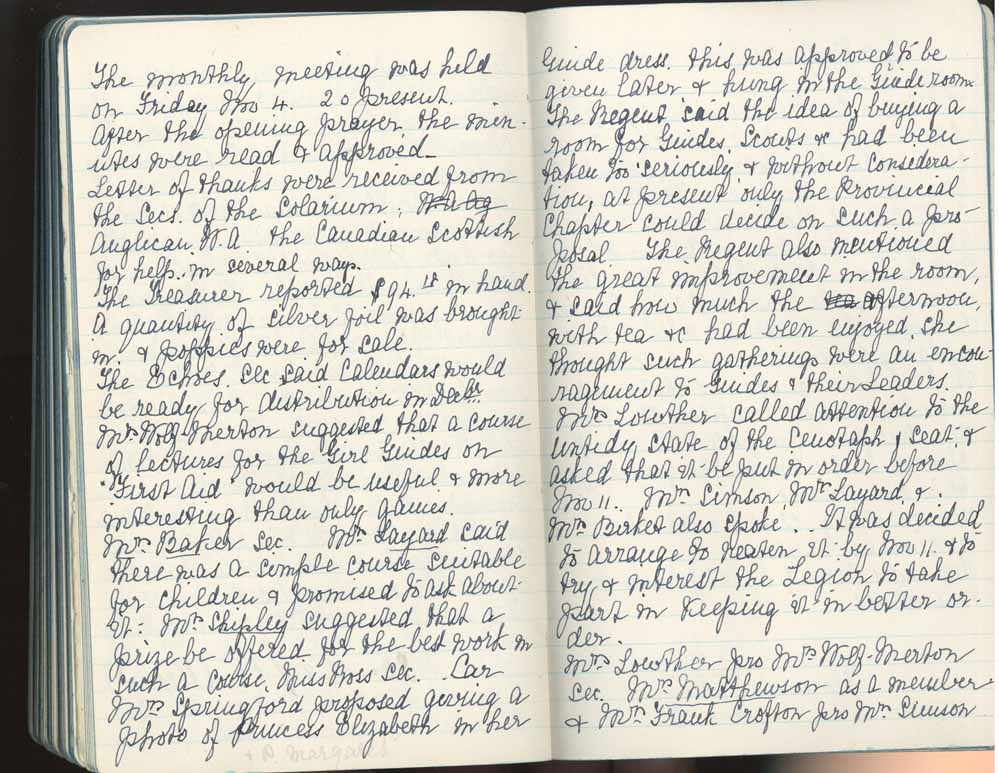 The monthly meeting was held
on Friday Nov 4. 20 present.
After the opening prayer the min-
utes were read & approved_
Letter of thanks were received from
the Secs. of the Solarium,
Anglican W.A. the Canadian Scottish
for help in several ways.
The Treasurer reported $94. in hand.
A quantity of silver foil was brought
in. & poppies were for sale.
The Echoes. Sec said Calendars would
be ready for distribution in Decbr.
Mrs Wolf-Merton suggested that a course
of lectures for the Girl Guides on
"First Aid" would be useful & more
interesting than only games.
Mrs Baker sec. Mrs Layard said
there was a simple course suitable
for children & promised to ask about
it. Mrs Shipley suggested that a
prize be offered for the best work in
such a course. Miss Moss sec. Car
Mrs Springford proposed giving a
photo of Princess Elizabeth in her
+ P. Margaret
Guide dress. this was approved to be
given later & hung in the Guide room
The Regent said the idea of buying a
room for Guides, Scouts &c had been
taken too seriously & without considera-
tion, at present only the Provincial
Chapter could decide on such a pro-
posal The Regent also mentioned
the great improvement in the room,
& said how much the afternoon,
with tea &c had been enjoyed, she
thought such gatherings were an encou-
ragement to Guides & their Leaders.
Mrs Lowther called attention to the
untidy state of the Cenotaph, seat, &
asked that it be put in order before
Nov 11. Mrs Simson, Mrs Layard, &.
Mrs Birket also spoke... It was decided
to arrange to neaten it by Nov 11. & to
try & interest the Legion to take
part in keeping it in better or-
der.
Mrs Lowther pro Mrs Wolf-Merton
sec. Mrs Matthewson as a member
& Mrs Frank Crofton pro Mrs Simson